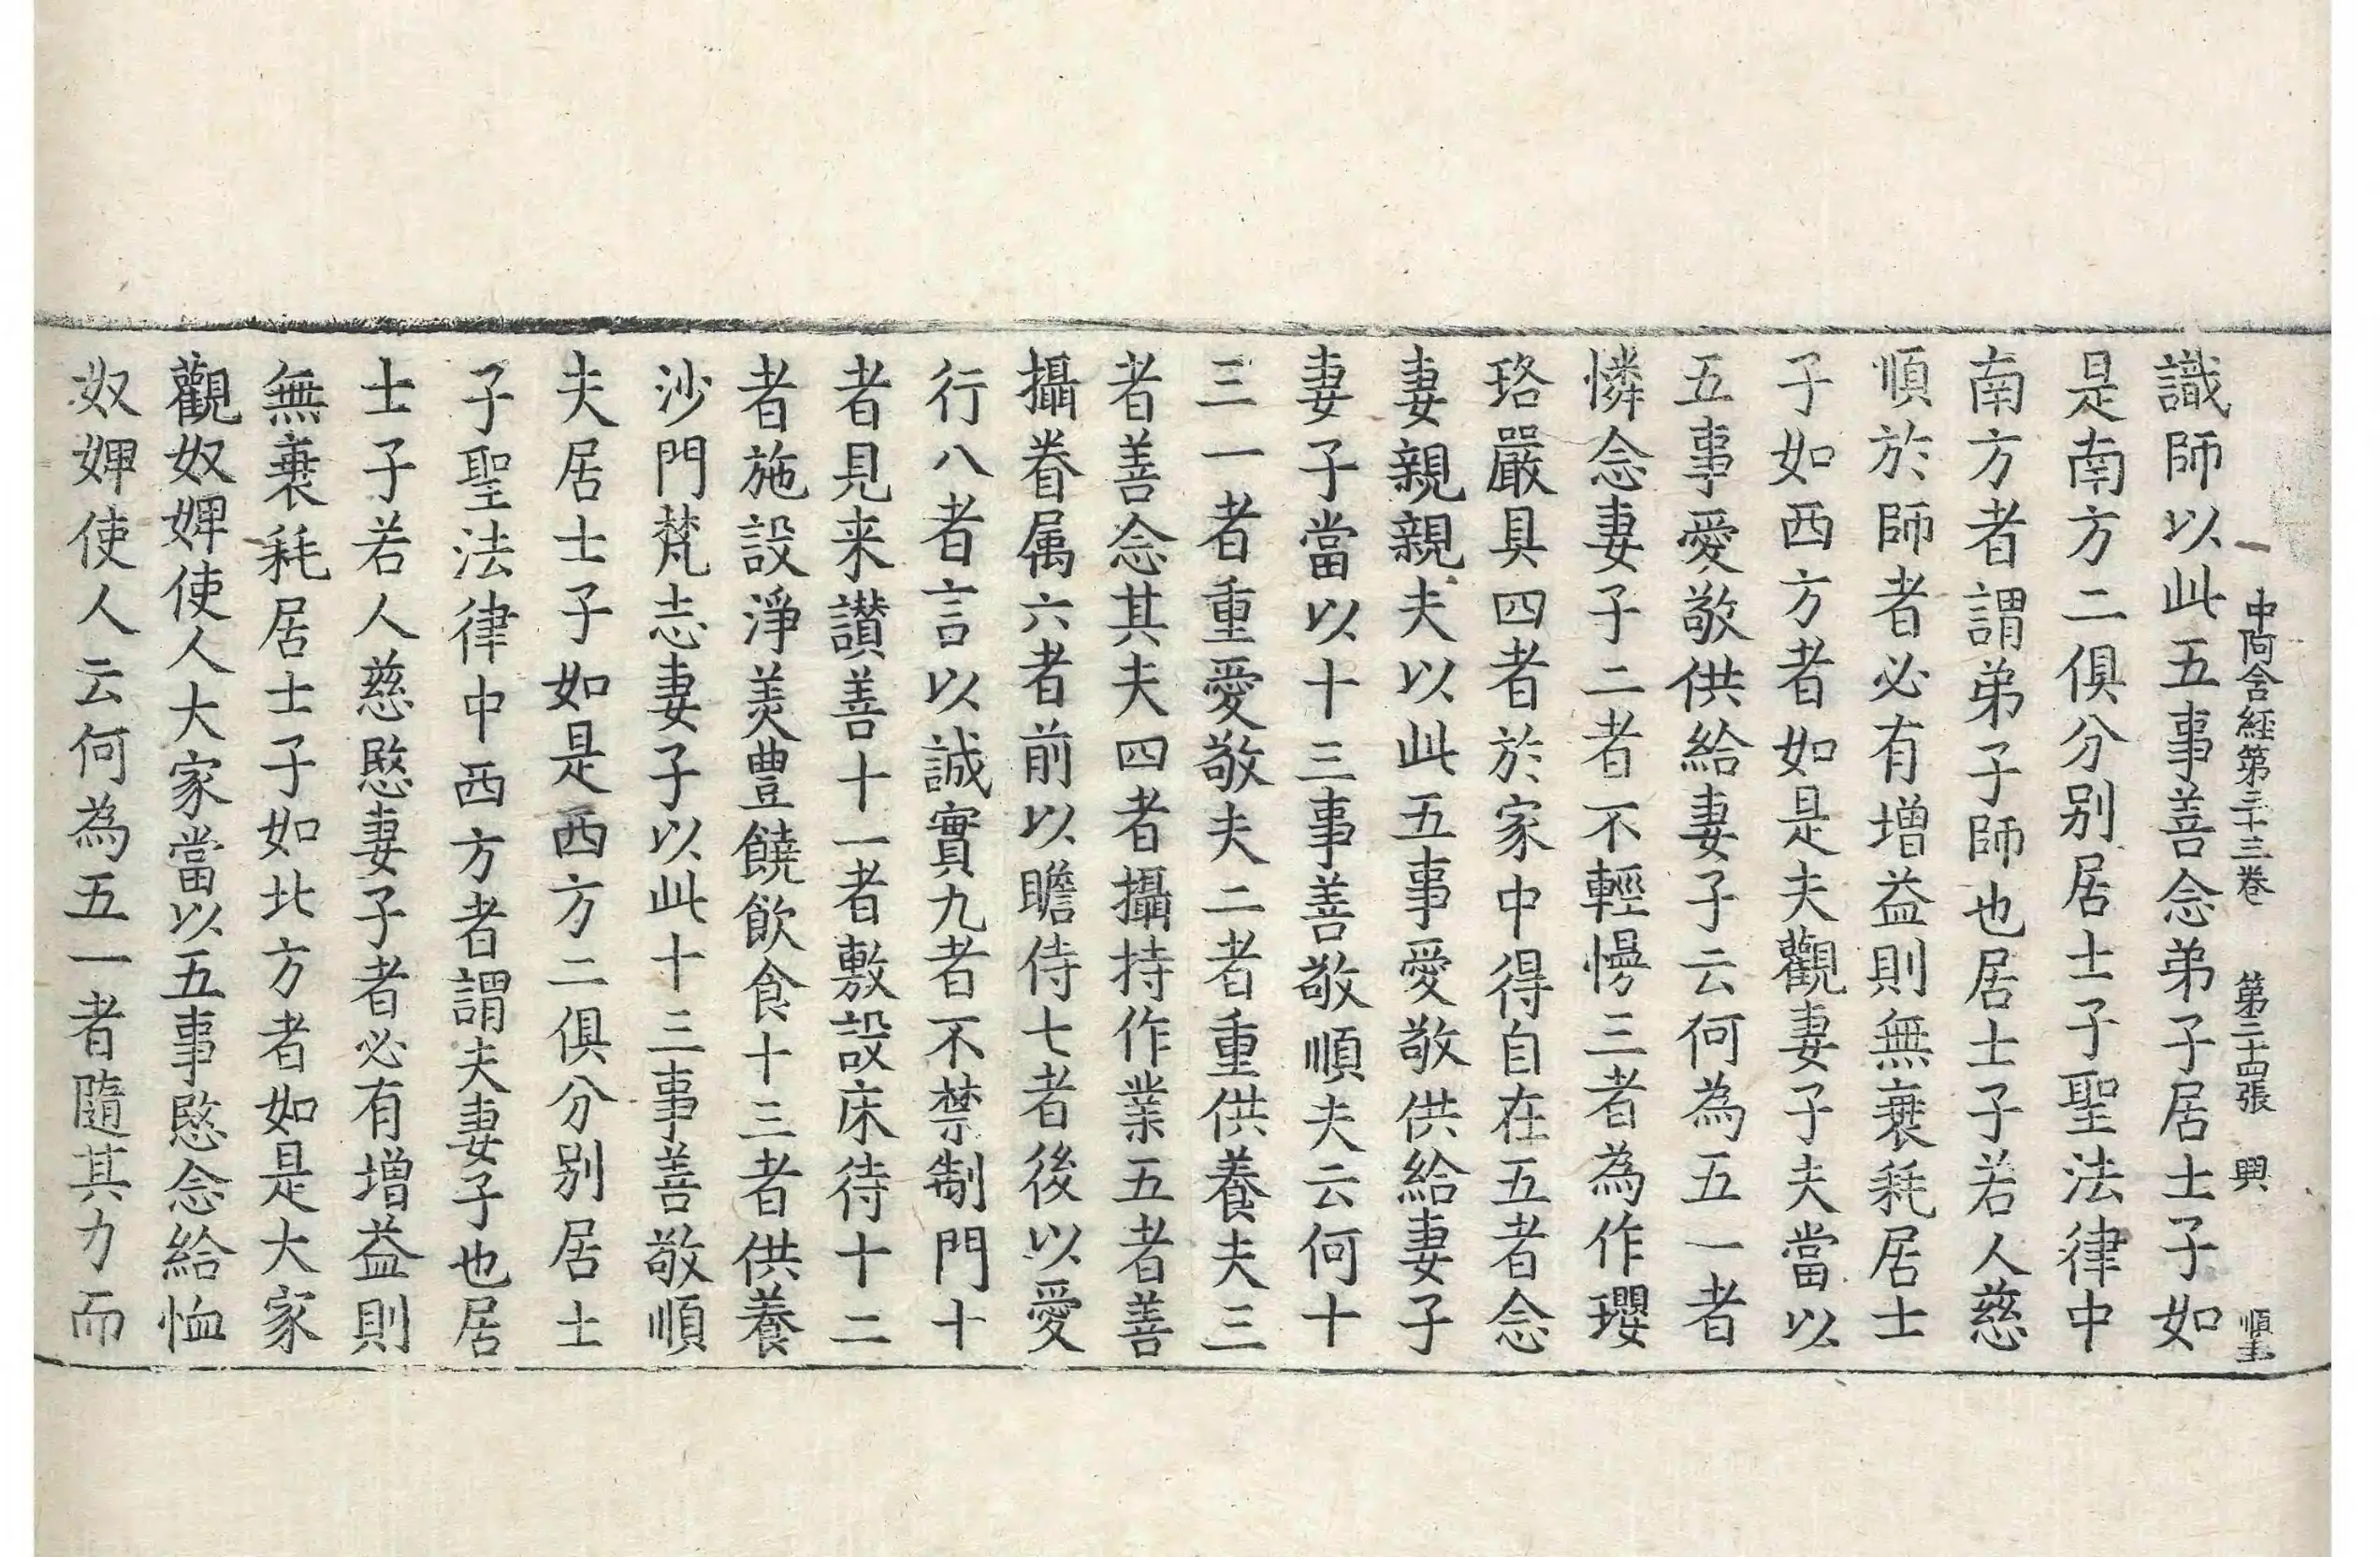 中阿含經第三十三卷 第二十四張 興 順圭
識師以此五事善念弟子居士子如
是南方二俱分别居士子聖法律中
南方者謂弟子師也居士子若人慈
順於師者必有增益則無衰耗居士
子如西方者如是夫觀妻子夫當以
五事愛敬供給妻子云何為五一者
憐念妻子二者不輕慢三者為作瓔
珞嚴具四者於家中得自在五者念
妻親親夫以此五事愛敬供給妻子
妻子當以十三事善敬順夫云何十
三一者重愛敬夫二者重供養夫三
者善念其夫四者攝持作業五者善
攝眷属六者前以瞻侍七者後以愛
行八者言以誠實九者不禁制門十
者見来讃善十一者敷設床待十二
者施設淨美豊饒飲食十三者供養
沙門梵志妻子以此十三事善敬順
夫居士子如是西方二俱分别居士
子聖法律中西方者謂夫妻子也居
士子若人慈愍妻子者必有增益則
無衰耗居士子如北方者如是大家
觀奴婢使人大家當以五事愍念給恤
奴婢使人云何為五一者隨其力而